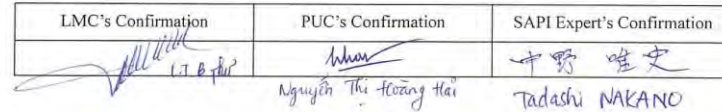 LMC's Confirmation PUC's Confirmation SAPI Expert's Confirmation
中野 唯史
Nguyễn Thị Hoàng Hải Tadashi NAKANO